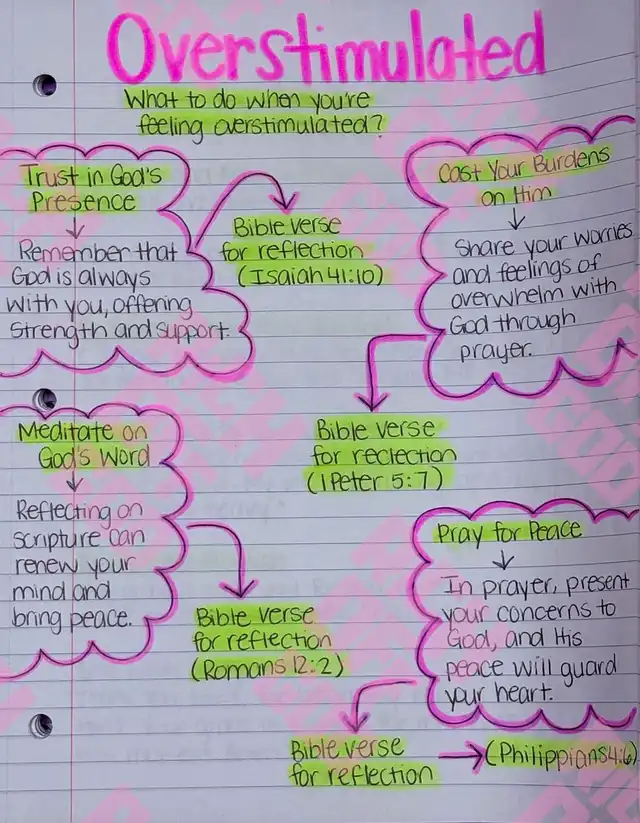 Overstimulated
What to do when you're
feeling overstimulated?
Trust in God's
Presence
Remember that
God is always
with you, offering
strength and support.
Bible verse
for reflection
(Isaiah 41:10)
Cast Your Burdens
on Him
Share your worries
and feelings of
overwhelm with
God through
prayer.
Bible verse
for reclection
(1 Peter 5:7)
Meditate on
God's Word
Reflecting on
scripture can
renew your
mind and
bring peace.
Bible verse
for reflection
(Romans 12:2)
Pray for Peace
In prayer, present
your concerns to
God, and His
peace will guard
your heart.
Bible verse
for reflection
(Philippians 4:6)